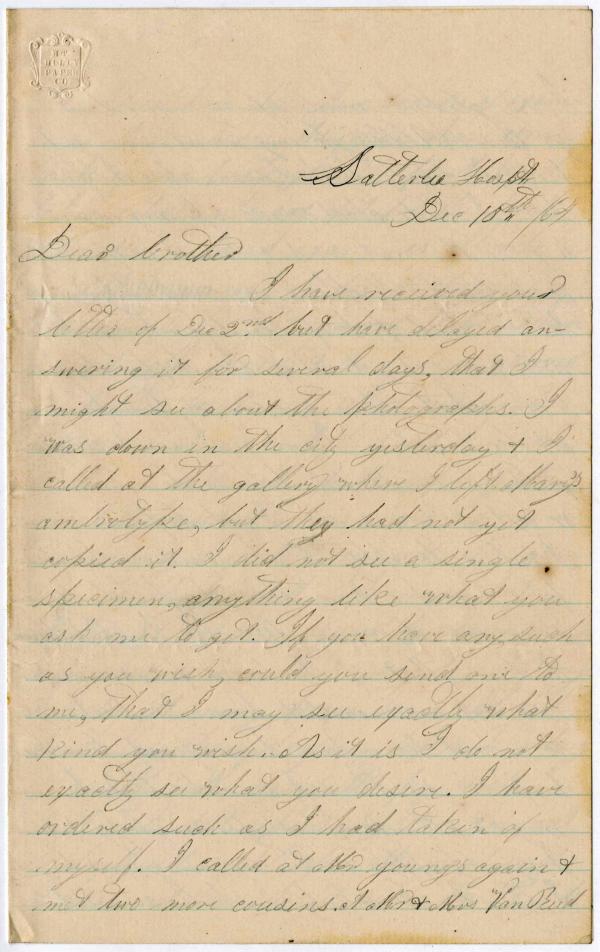 MT
HOLLY
PAPER
CO
Satterlee Hospt
Dec 10th /64
Dear brother
I have received your
letter of Dec 2nd. but have delayed an-
swering it for several days, that I
might see about the photographs. I
was down in the city yesterday & I
called at the gallery where I left Mary's
ambrotype, but they had not yet
copied it. I did not see a single
specimen, anything like what you
ask me to get. If you have any such
as you wish, could you send one to
me, that I may see exactly what
kind you wish. As it is I do not
exactly see what you desire. I have
ordered such as I had taken of
myself. I called at Mr youngs again &
met two more cousins. at Mr & Mrs Van